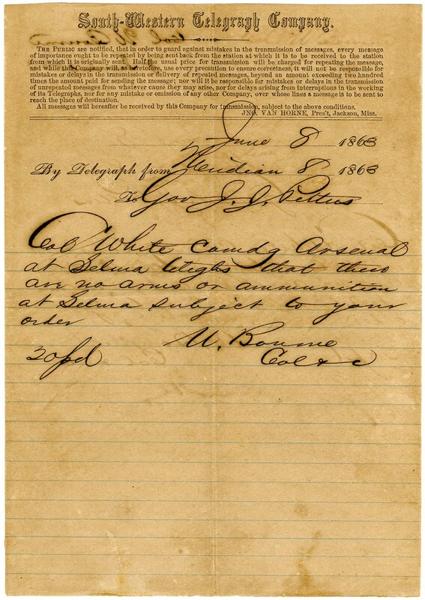 South-Western Telegraph Company.
THE PUBLIC are notified, that in order to guard against mistakes in the transmission of messages, every message
of importance ought to be repeated by being sent back from the station at which it is to be received to the station
from which it is originally sent. Half the usual price for transmission will be charged for repeating the message,
and while this Company will as heretofore, use every precaution to ensure correctness, it will not be responsible for
mistakes or delays in the transmission or delivery of repeated messages, beyond an amount exceeding two hundred
times the amount paid for sending the message; nor will it be responsible for mistakes or delays in the transmission
of unrepeated messages from whatever cause they may arise, nor for delays arising from interruptions in the working
of its Telegraphs, nor for any mistake or omission of any other Company, over whose lines a message is to be sent to
reach the place of destination.
All messages will hereafter be received by this Company for transmission, subject to the above conditions.
JNO. VAN HORNE, Pres't, Jackson, Miss.
June 8 1863
By Telegraph from Meridian 8 1863
To Gov J. J. Pettus
Col White comdg Arsenal
at Selma telighs that there
are no arms or ammunition
at Selma subject to your
order
U. Bourne
20 pd Col & c